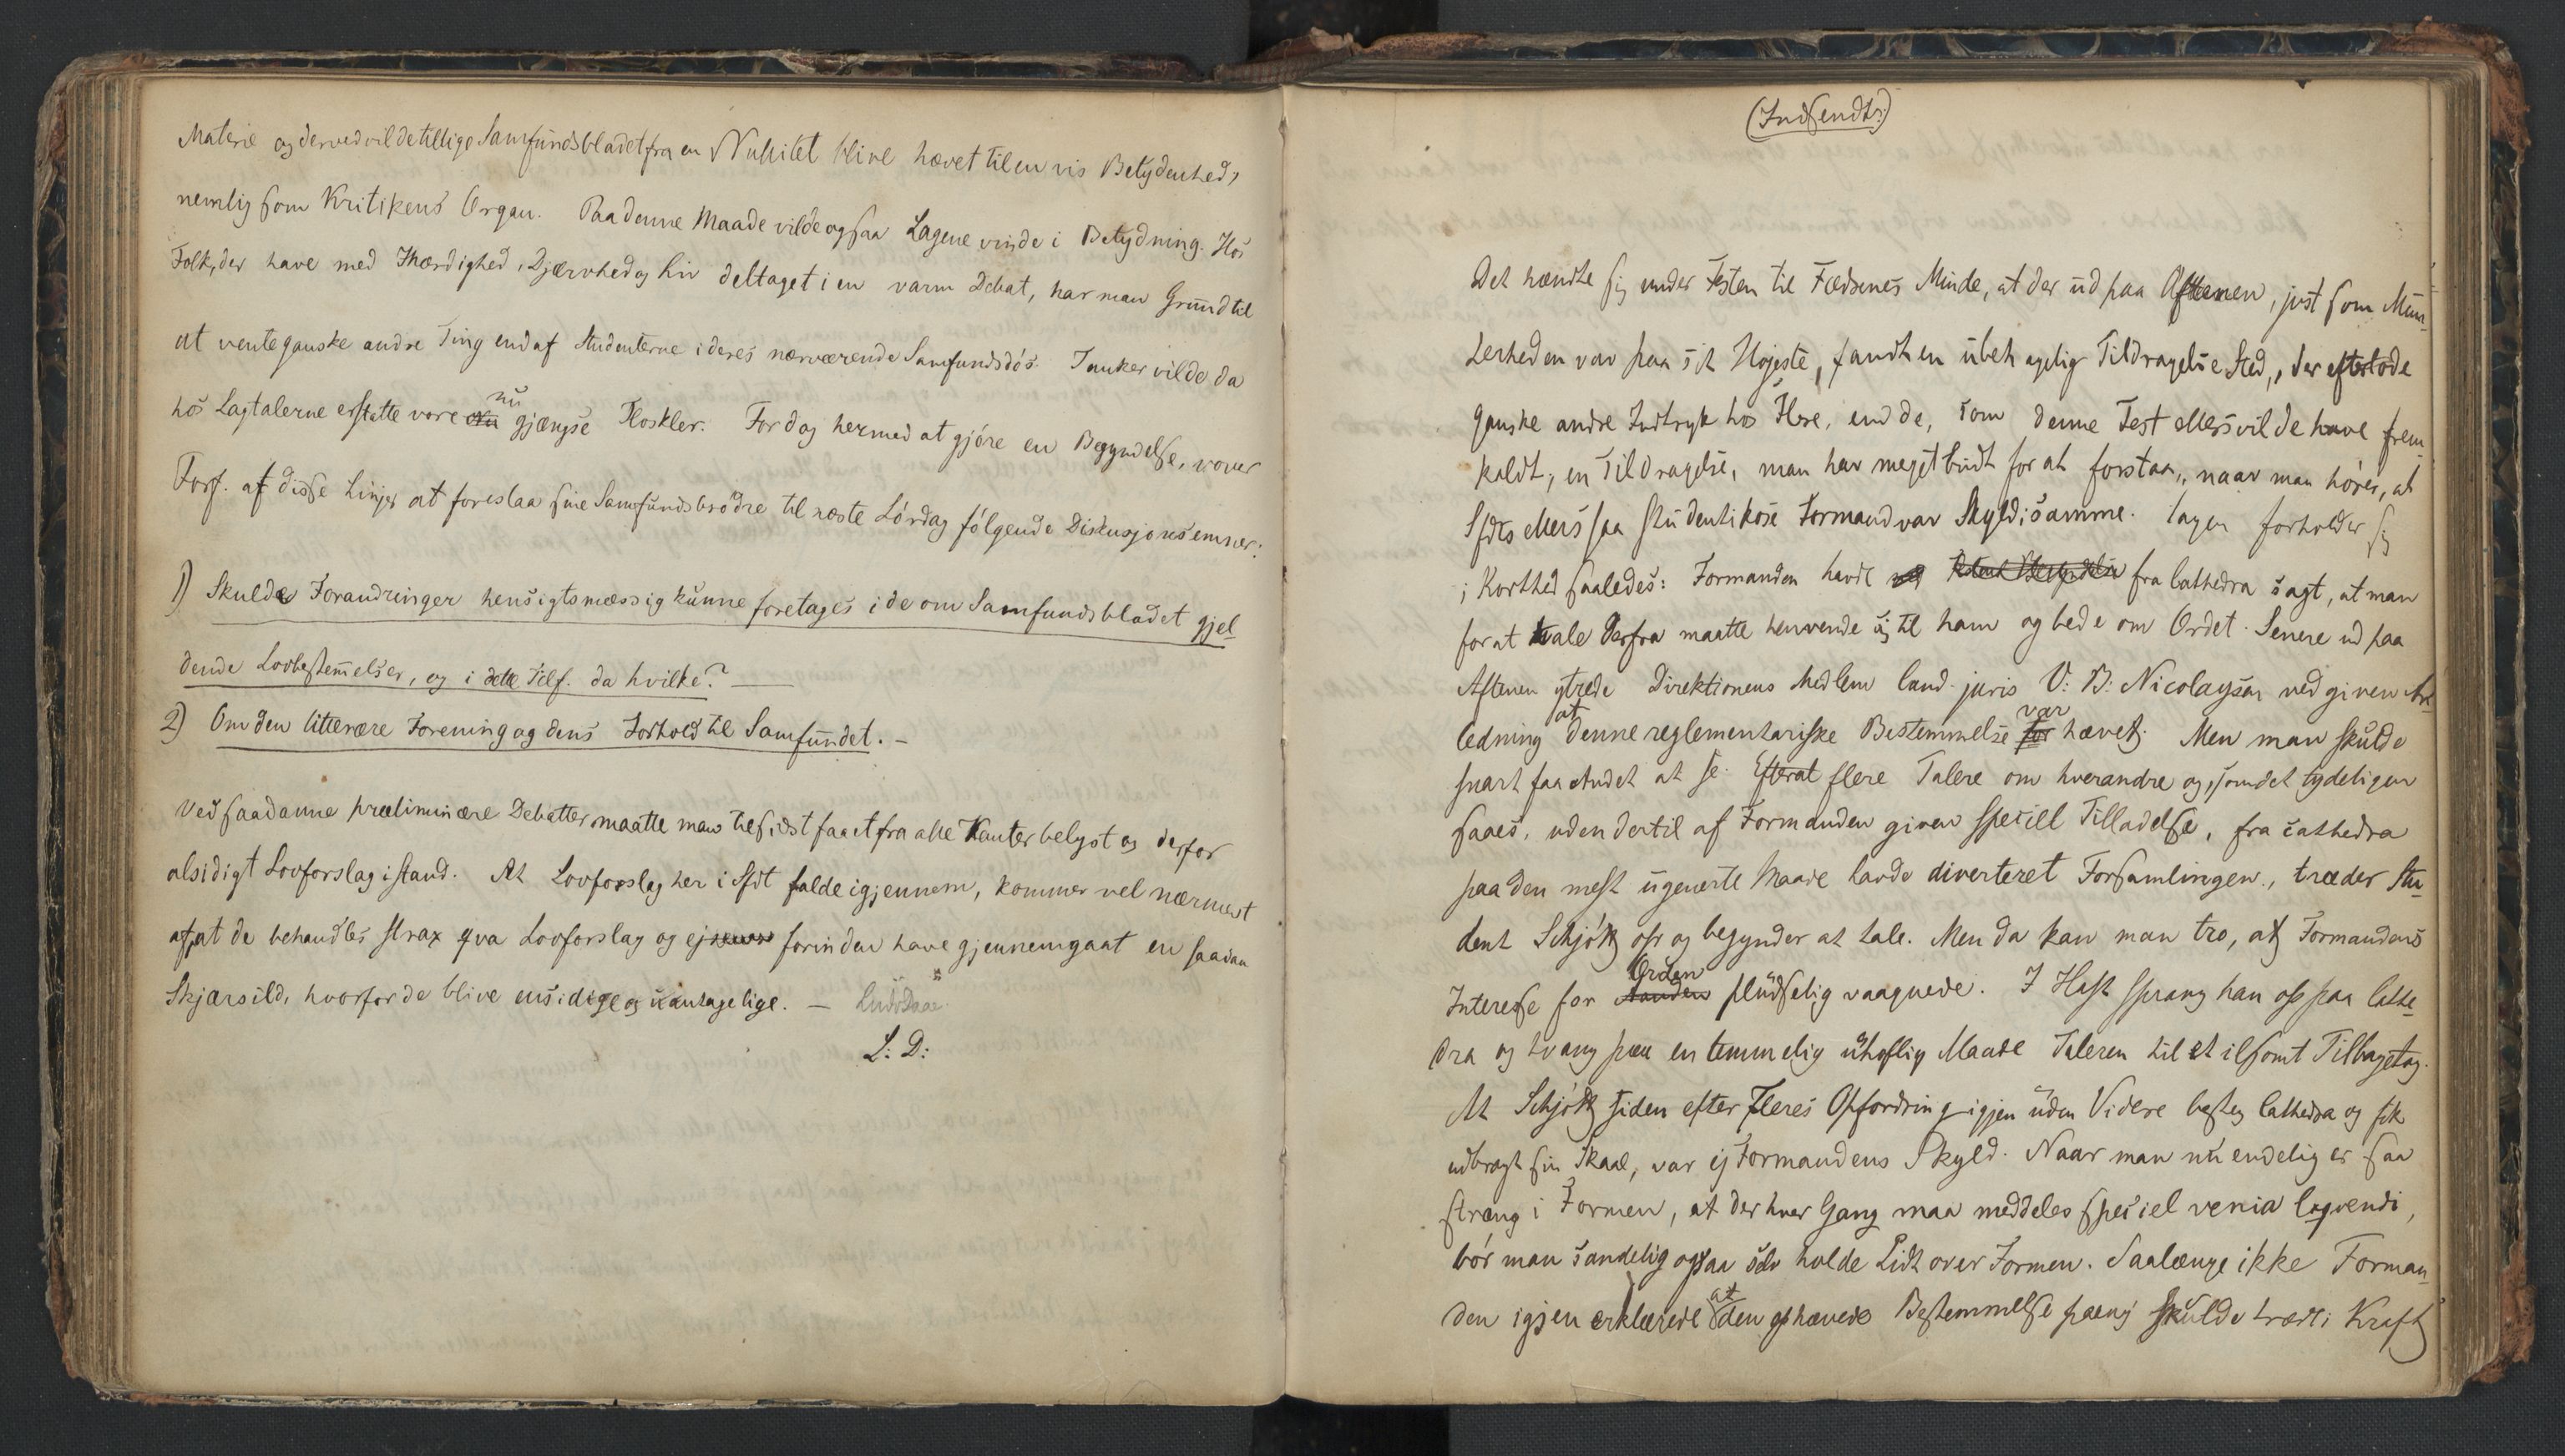 Materie og derved vilde tillige Samfundsbladet fra en Nullitet blive hævet til en vis Betydenhed,
nemlig som Kritikens Organ. Paa denne Maade vilde ogsaa Lagene vinde i Betydning. Hos
Folk, der have med Ihærdighed, Djærvhed og Liv deltaget i en varm Debat, har man Grund til
at vente ganske andre Ting end af Studenterne i deres nærværende Samfundsdøs. Tanker vilde da
hos Lagtalerne erstatte vore nu gjængse Floskler. For dog hermed at gjøre en Begyndelse, vover
Forf. af disse Linjer at foreslaa sine Samfundsbrødre til næste Lørdag følgende Diskusjonsemner:
1) Skulde Forandringer hensigtsmæssig kunne foretages i de om Samfundsbladet gjel
dende Lovbestemelser, og i dette Tilf. da hvilke? —
2) Om den litterære Forening og dens Forhold til Samfundet. —
Ved saadanne præliminære Debatter maatte man tilsidst faaet fra alle Kanter belyst og derfor
alsidigt Lovforslag istand. At Lovforslag her i Sfdt falde igjennem, kommer vel nærmest
af, at de behandles strax qva Lovforslag og ej forinden have gjennemgaat en saadan
Skjærsild, hvorfor de blive ensidige og uantagelige. —
L: D:
(Indsendt:)
Det hændte sig under Festen til Fædrenes Minde, at der ud paa Aftenen, just som Mun-
terheden var paa sit Højeste, fandt en ubehagelig Tildragelse Sted, der efterlode
ganske andre Indtryk hos Flere, end de, som denne Fest ellers vilde have frem
kaldt; en Tildragelse, man har meget ondt for at forstaa, naar man hører, at
Sfdts ellers saa studentikose Formand var Skyld i samme. Sagen forholder sig
i Korthed saaledes: Formanden havde fra Cathedra sagt, at man
for at tale derfra maatte henvende sig til ham og bede om Ordet. Senere ud paa
Aftenen ytrede Direktionens Medlem Cand. juris V: B: Nicolaysen ved given An-
ledning at denne reglementariske Bestemmelse var hævet. Men man skulde
snart faa Andet at se. Efterat flere Talere om hverandre og, som det tydeligen
saaes, uden dertil af Formanden given speciell Tilladelse, fra Cathedra
paa den mest ugenerte Maade havde diverteret Forsamlingen, træder Stu-
dent Schjøtt op og begynder at tale. Men da kan man tro, at Formandens
Interesse for Orden pludselig vaagnede. I Hast sprang han op paa Cathe-
dra og tvang paa en temmelig uhøflig Maade Taleren til et ilsomt Tilbagetog.
At Schjøtt siden efter Fleres Opfordring igjen uden Videre besteg Cathedra og fik
udbragt sin Skaal, var ej Formandens Skyld. Naar man nu endelig er saa
streng i Formen, at der hver Gang maa meddeles speciel venia loqvendi,
bør man sandelig ogsaa selv holde Lidt over Formen. Saalænge ikke Forman-
den igjen erklærede at den ophævede Bestemmelse paany skulde træde i Kraft